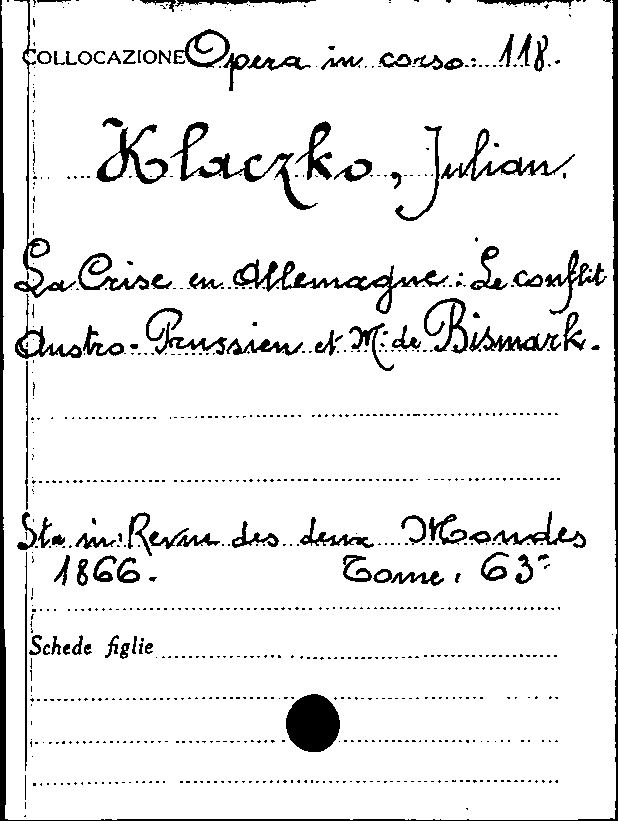 COLLOCAZIONE Opera in corso: 118.
Klaczko, Julian.
La Crise en Allemagne: Le conflit
Austro-Prussien et Mr. de Bismark.
Sta in: Revue des deux Mondes
1866. Tome. 63=
Schede figlie